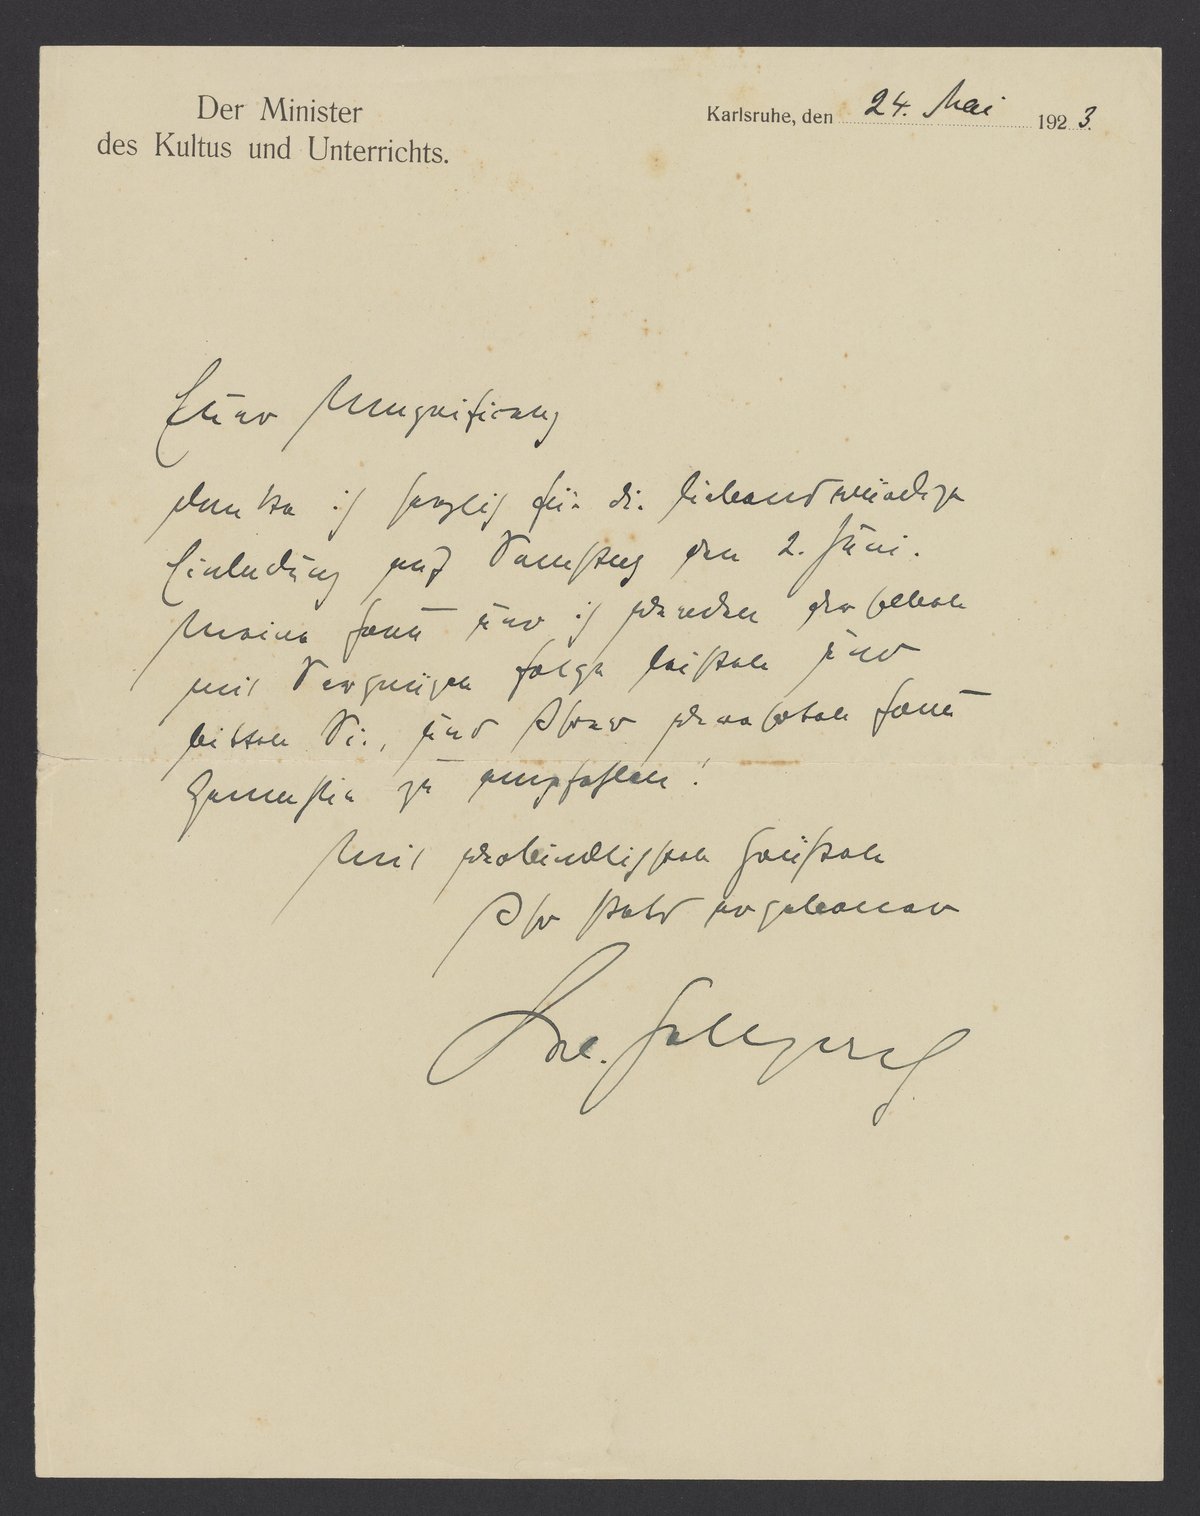 Der Minister
des Kultus und Unterrichts.
Karlsruhe, den 24. Mai 1923.
Euer Magnificenz
danke ich herzlich für die liebenswürdige
Einladung auf Samstag den 2. Juni.
Meine Frau und ich werden derselben
mit Vergnügen Folge leisten und
bitten Sie, uns Ihrer verehrten Frau
Gemahlin zu empfehlen!
Mit verbindlichsten Grüßen
Ihr stets ergebener
Hellpach